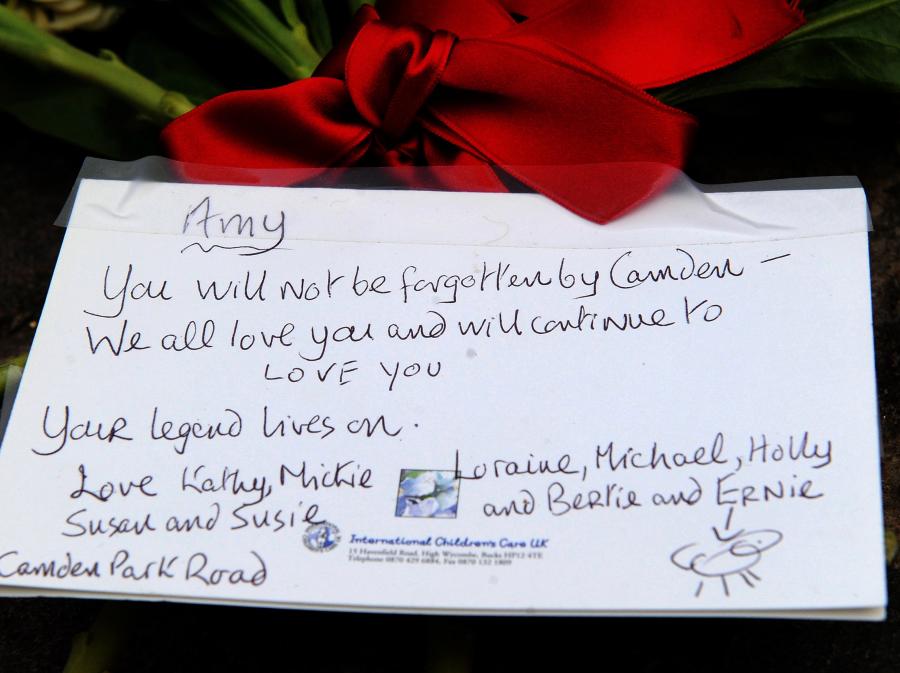 Amy
You will not be forgotten by Camden -
We all love you and will continue to
LOVE YOU
Your legend lives on.
Love Kathy, Mickie
Susan and Susie
Camden Park Road
Loraine, Michael, Holly
and Bertie and ERNIE
International Children's Care UK
15 Havenfield Road, High Wycombe, Bucks HP12 4TE
Telephone 0870 429 6884, Fax 0870 132 1809